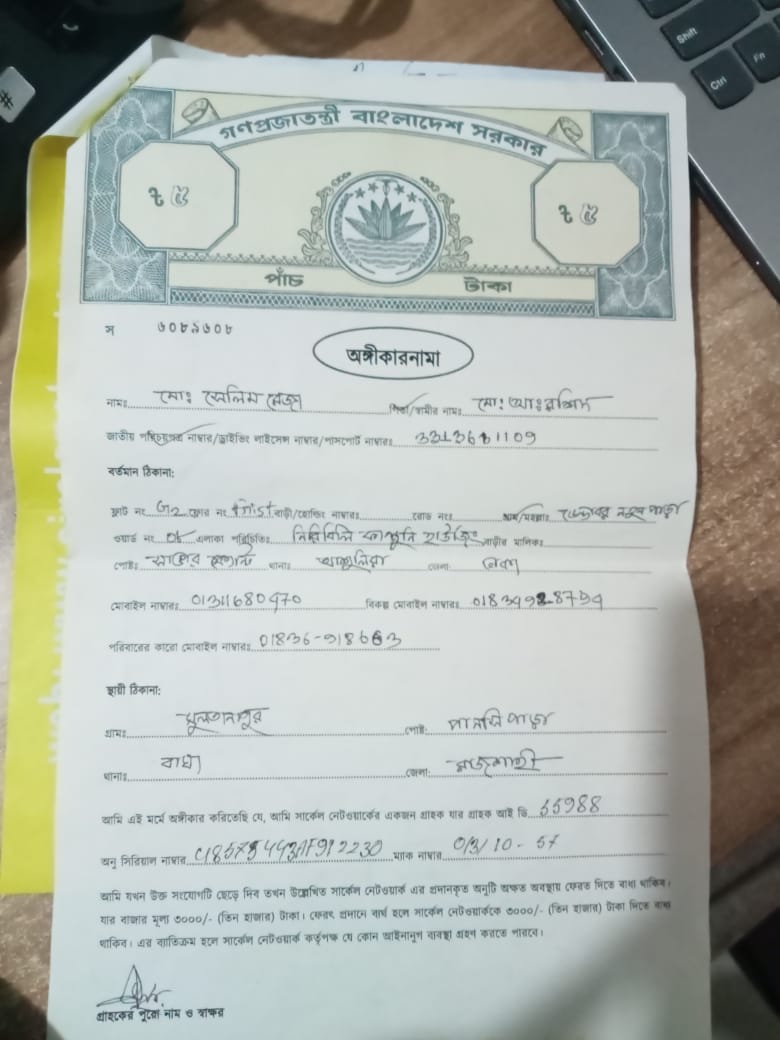 Shift
Fn
Ctrl
#
গণপ্রজাতন্ত্রী বাংলাদেশ সরকার
৳ ৫
৳ ৫
পাঁচ টাকা
স ৬০৮৯৬০৮
অঙ্গীকারনামা
নামঃ মোঃ সেলিম রেজা পিতা/স্বামীর নামঃ মোঃ আঃ রশিদ
জাতীয় পরিচয়পত্র নাম্বার/ড্রাইভিং লাইসেন্স নাম্বার/পাসপোর্ট নাম্বারঃ
বর্তমান ঠিকানা:
ফ্লাট নং G2 ফ্লোর নং বাড়ী/হোল্ডিং নাম্বারঃ রোড নংঃ গ্রাম/মহল্লাঃ পাড়া
ওয়ার্ড নং 06 এলাকা পরিচিতিঃ নিরিবিলি হাউজিং বাড়ীর মালিকঃ
পোষ্টঃ থানাঃ আশুলিয়া জেলাঃ ঢাকা
মোবাইল নাম্বারঃ 01311680470 বিকল্প মোবাইল নাম্বারঃ
পরিবারের কারো মোবাইল নাম্বারঃ 01836-918663
স্থায়ী ঠিকানা:
গ্রামঃ সুলতানপুর পোষ্ট: পানসি পাড়া
থানাঃ বাঘা জেলা: রাজশাহী
আমি এই মর্মে অঙ্গীকার করিতেছি যে, আমি সার্কেল নেটওয়ার্কের একজন গ্রাহক যার গ্রাহক আই ডি 55988
অনু সিরিয়াল নাম্বার ম্যাক নাম্বার
আমি যখন উক্ত সংযোগটি ছেড়ে দিব তখন উল্লেখিত সার্কেল নেটওয়ার্ক এর প্রদানকৃত অনুটি অক্ষত অবস্থায় ফেরত দিতে বাধ্য থাকিব।
যার বাজার মূল্য ৩০০০/- (তিন হাজার) টাকা। ফেরৎ প্রদানে ব্যর্থ হলে সার্কেল নেটওয়ার্ককে ৩০০০/- (তিন হাজার) টাকা দিতে বাধ্য
থাকিব। এর ব্যতিক্রম হলে সার্কেল নেটওয়ার্ক কর্তৃপক্ষ যে কোন আইনানুগ ব্যবস্থা গ্রহণ করতে পারবে।
গ্রাহকের পুরো নাম ও স্বাক্ষর